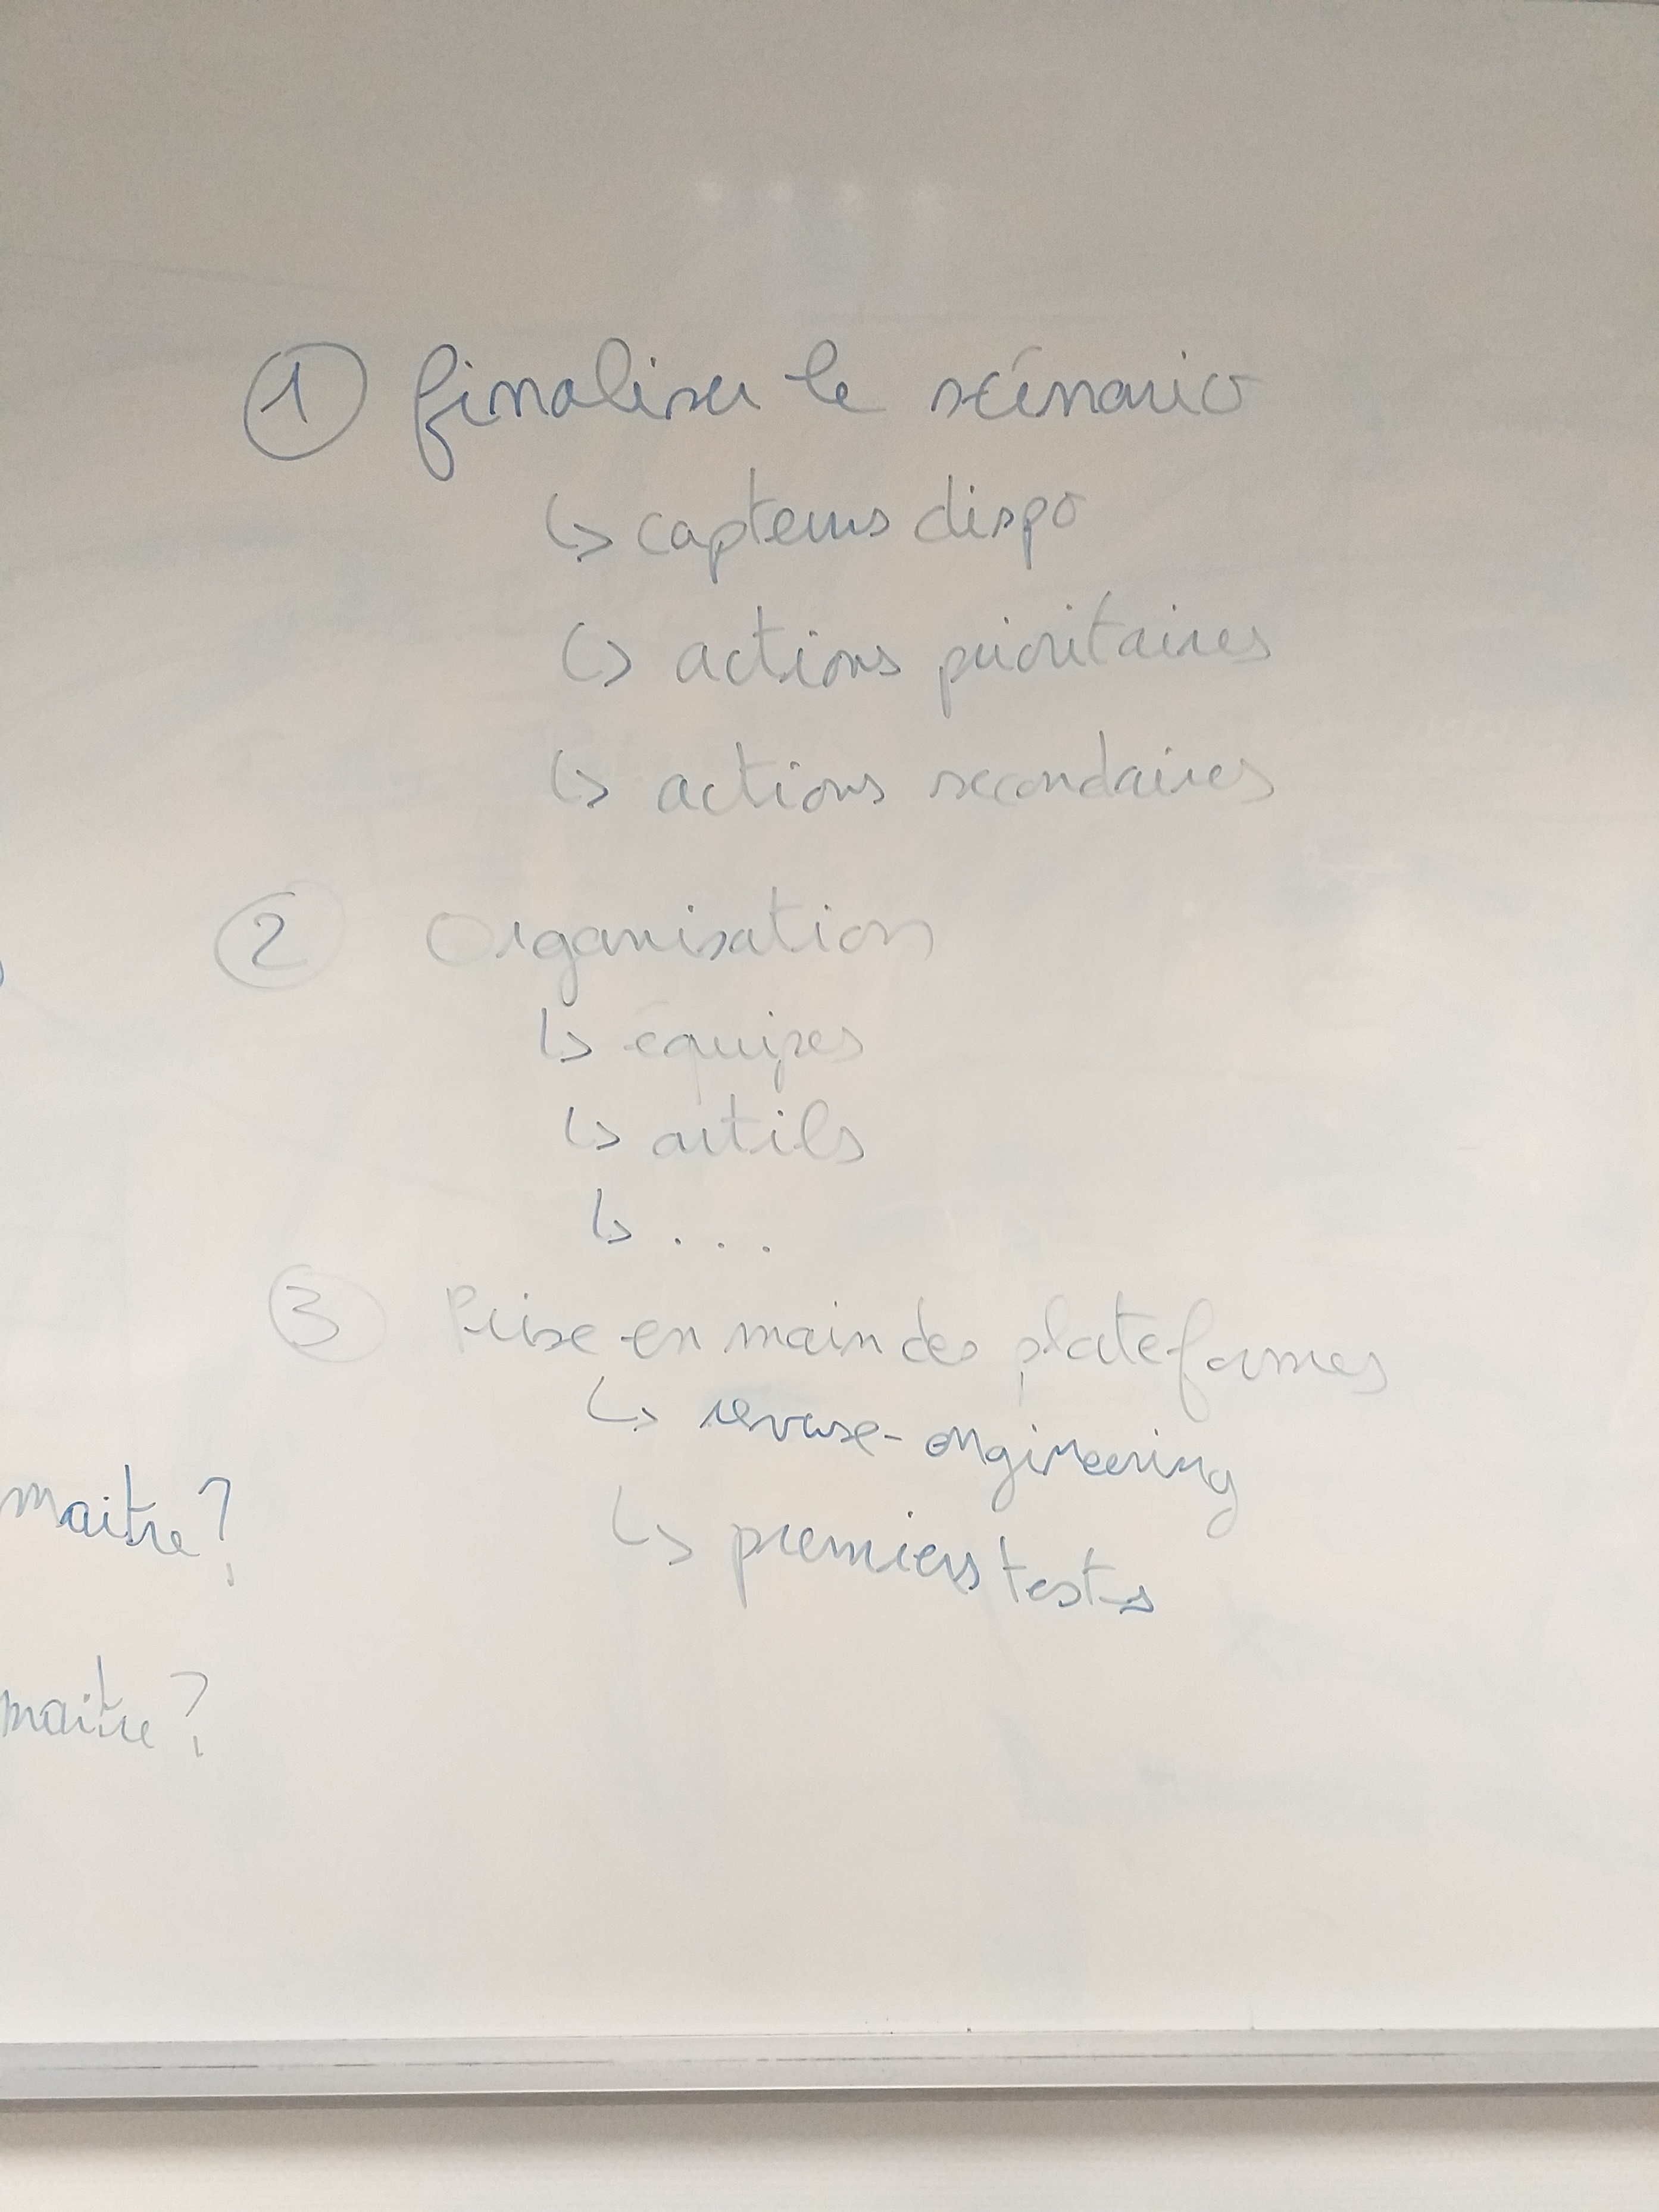 ① finaliser le scénario
↳ capteurs dispo
↳ actions prioritaires
↳ actions secondaires
② Organisation
↳ équipes
↳ outils
↳ ...
③ Prise en main des plateformes
↳ reverse-engineering
↳ premiers tests
maitre ?
maitre ?